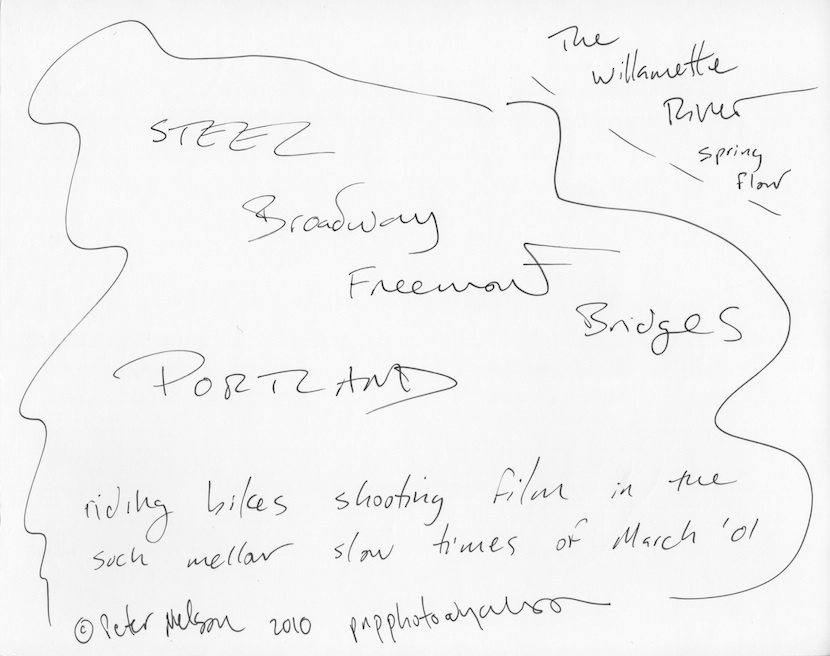 The
Willamette
River
spring
flow
STEEL
Broadway
Freemont
Bridges
PORTLAND
riding bikes shooting film in the
such mellow slow times of March '01
© Peter Nelson 2010